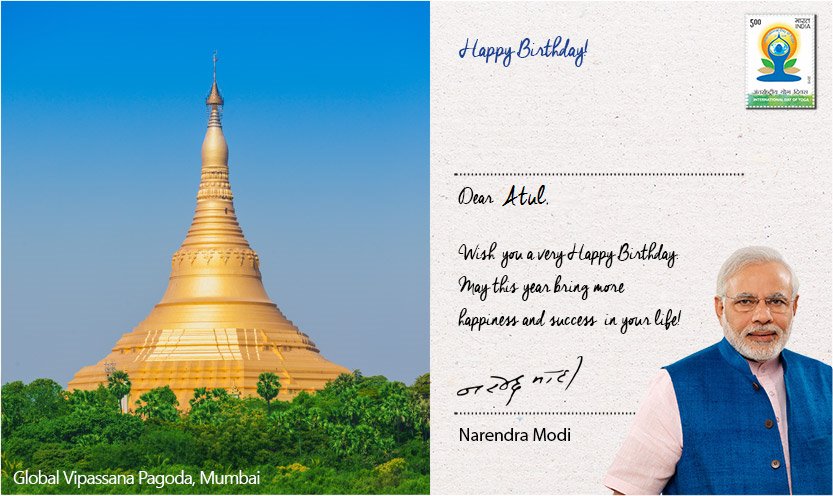 Happy Birthday!
5.00 भारत
INDIA
अंतर्राष्ट्रीय योग दिवस
INTERNATIONAL DAY OF YOGA
Dear Atul,
Wish you a very Happy Birthday.
May this year bring more
happiness and success in your life!
नरेन्द्र मोदी
Narendra Modi
Global Vipassana Pagoda, Mumbai